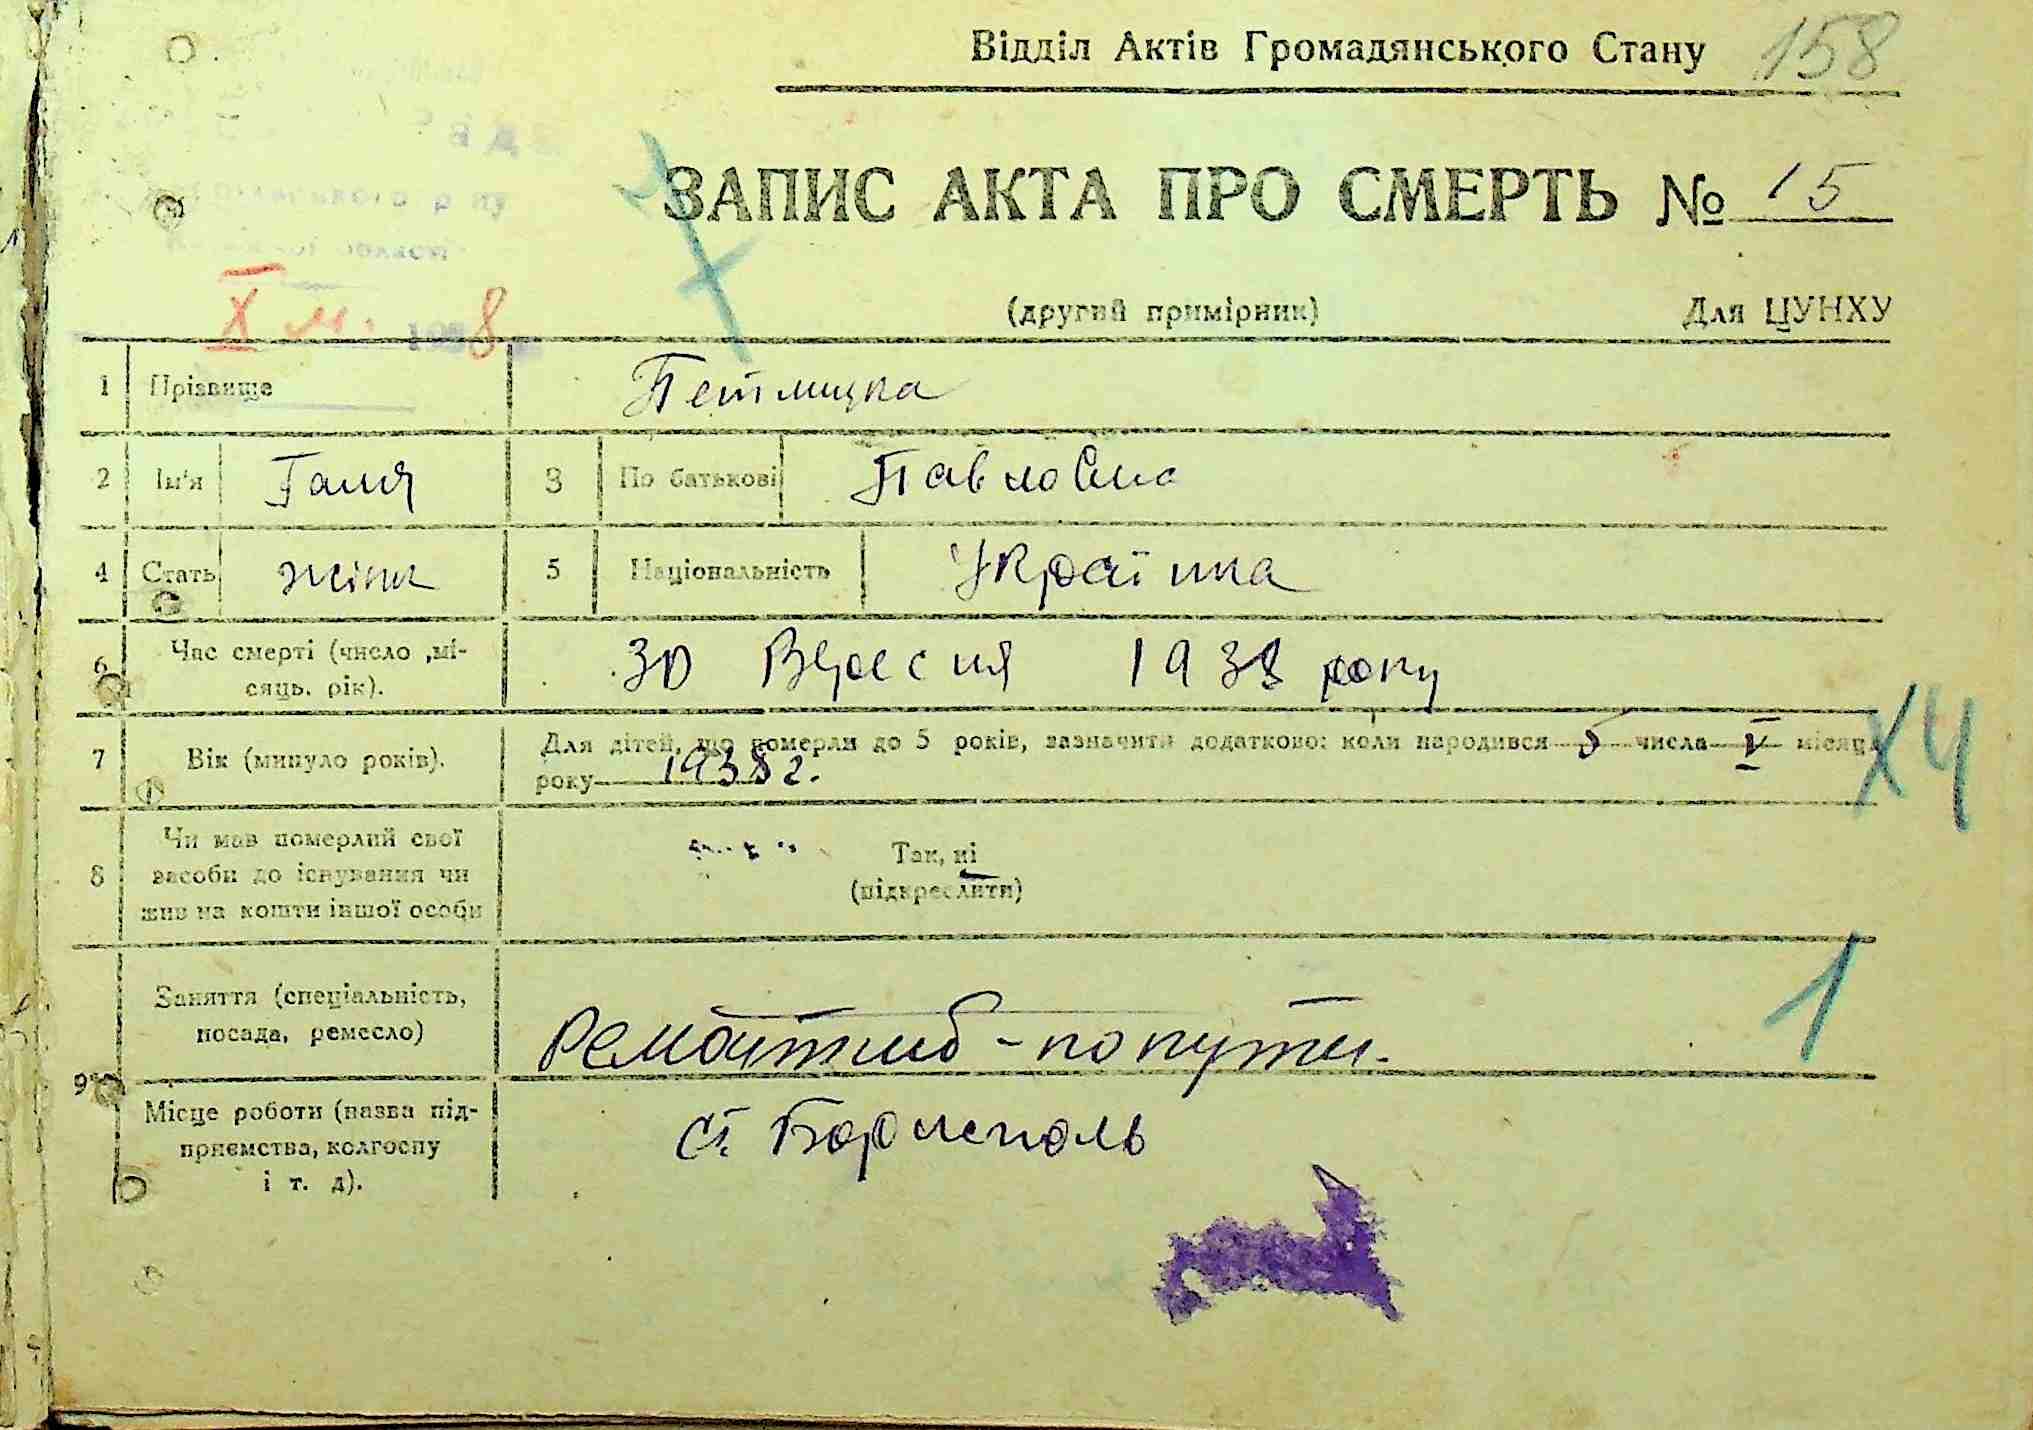 Відділ Актів Громадянського Стану 158
ЗАПИС АКТА ПРО СМЕРТЬ № 15
(другий примірник) Для ЦУНХУ
області
X м. 1938
1 Прізвище Петлицка
2 Ім'я Галя 3 По батькові Павловна
4 Стать жіноч 5 Національність Українка
6 Час смерті (число ,мі-
сяць. рік). 30 Вересня 1938 року
7 Вік (минуло років). Для дітей, що померли до 5 років, зазначити додатково: коли народився 5 числа V місяця
року 1938 г.
X4
8 Чи мав померлий свої
засоби до існування чи
жив на кошти іншої особи
Так, ні
(підкреслити)
1
9 Заняття (спеціальність,
посада, ремесло)
Місце роботи (назва під-
приємства, колгоспу
і т. д).
ст. Борисполь